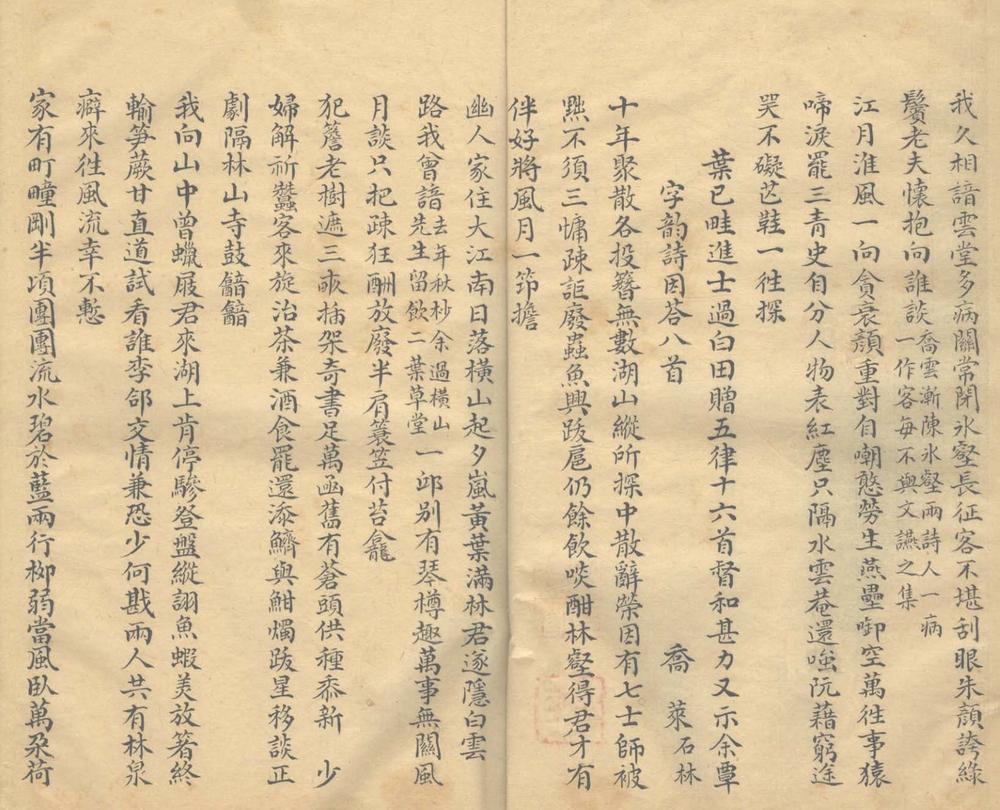 我久相諳雲堂多病關常閉氷壑長征客不堪刮眼朱顔誇綠
鬢老夫懷抱向誰談喬雲漸陳氷壑兩詩人一病一作客每不與文讌之集
江月淮風一向貪衰顔重對自嘲憨勞生燕壘啣空萬徃事猿
啼淚罷三青史自分人物表紅塵只隔水雲菴還嗤阮藉窮途
哭不礙芒鞋一徃探
葉已畦進士過白田贈五律十六首督和甚力又示余覃
字韵詩因荅八首
喬萊石林
十年聚散各投簪無數湖山縱所探中散辭榮因有七士師被
黜不須三慵疎詎廢蟲魚興跋扈仍餘飲啖酣林壑得君才有
伴好將風月一笻擔
幽人家住大江南日落橫山起夕嵐黃葉滿林君遂隱白雲
路我曾諳去年秋杪余過橫山先生留飲二葉草堂一邱别有琴樽趣萬事無關風
月談只把疎狂酬放廢半肩簑笠付苔龕
犯簷老樹遮三畝揷架奇書足萬函舊有蒼頭供種黍新少
婦解祈蠶客來旋治茶兼酒食罷還添鱭與蚶燭跋星移談正
劇隔林山寺鼓韽韽
我向山中曾蠟屐君來湖上肯停驂登盤縱詡魚蝦美放箸終
輸笋蕨甘直道試看誰李郃交情兼恐少何戡兩人共有林泉
癖來徃風流幸不慙
家有町畽剛半頃團團流水碧於藍兩行栁弱當風臥萬朶荷